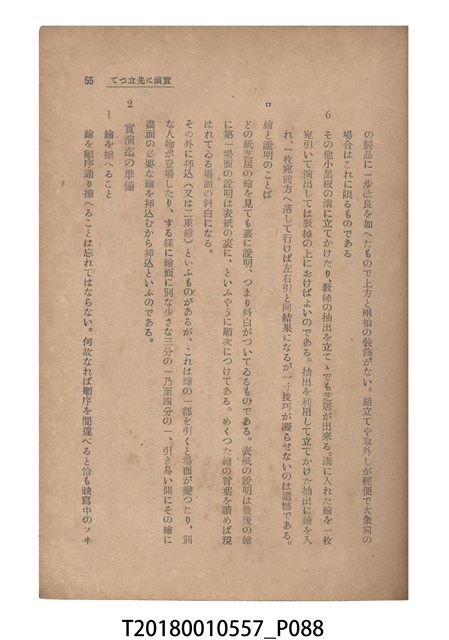 實演に先立つて 55
の製品に一步改良を加へたもので上方と兩袖の裝飾がない。組立てや取外しが輕便で大衆同の
場合はこれに限るものである
6 その他小黑板の溝に立てかけたり、敎棹の抽出を立てゝでも芝居が出來る。溝に入れた繪を一枚
宛引いて演出しては敎棹の上におけばよいのである。抽出を利用して立てかけた抽出に繪を入
れ、一枚宛前方へ落して行けば左右引と同結果になるが一寸技巧が凝らせないのは遺憾である。
ロ 繪と說明のことば
どの紙芝居の繪を見ても裏に說明、つまり科白がついてゐるものである。表紙の說明は最後の繪
に第一場面の說明は表紙の裏に、といふやうに順次につけてある。めくつた繪の言葉を讀めば現
はれてゐる場面の科白になる。
その外に挿込(又は二重繪)といふものがあるが、これは繪の一部を引くと場面が變つたり、別
な人物が登場したり、する樣に繪面に別な少さな三分の一乃至四分の一、引き易い側にその繪に
畫面の必要な繪を挿込むから挿込といふのである。
2 實演迄の準備
1 繪を揃へること
繪を順序通り揃へることは忘れてはならない。何故なれば順序を間違へると恰も映寫中のフヰ
T20180010557_P088